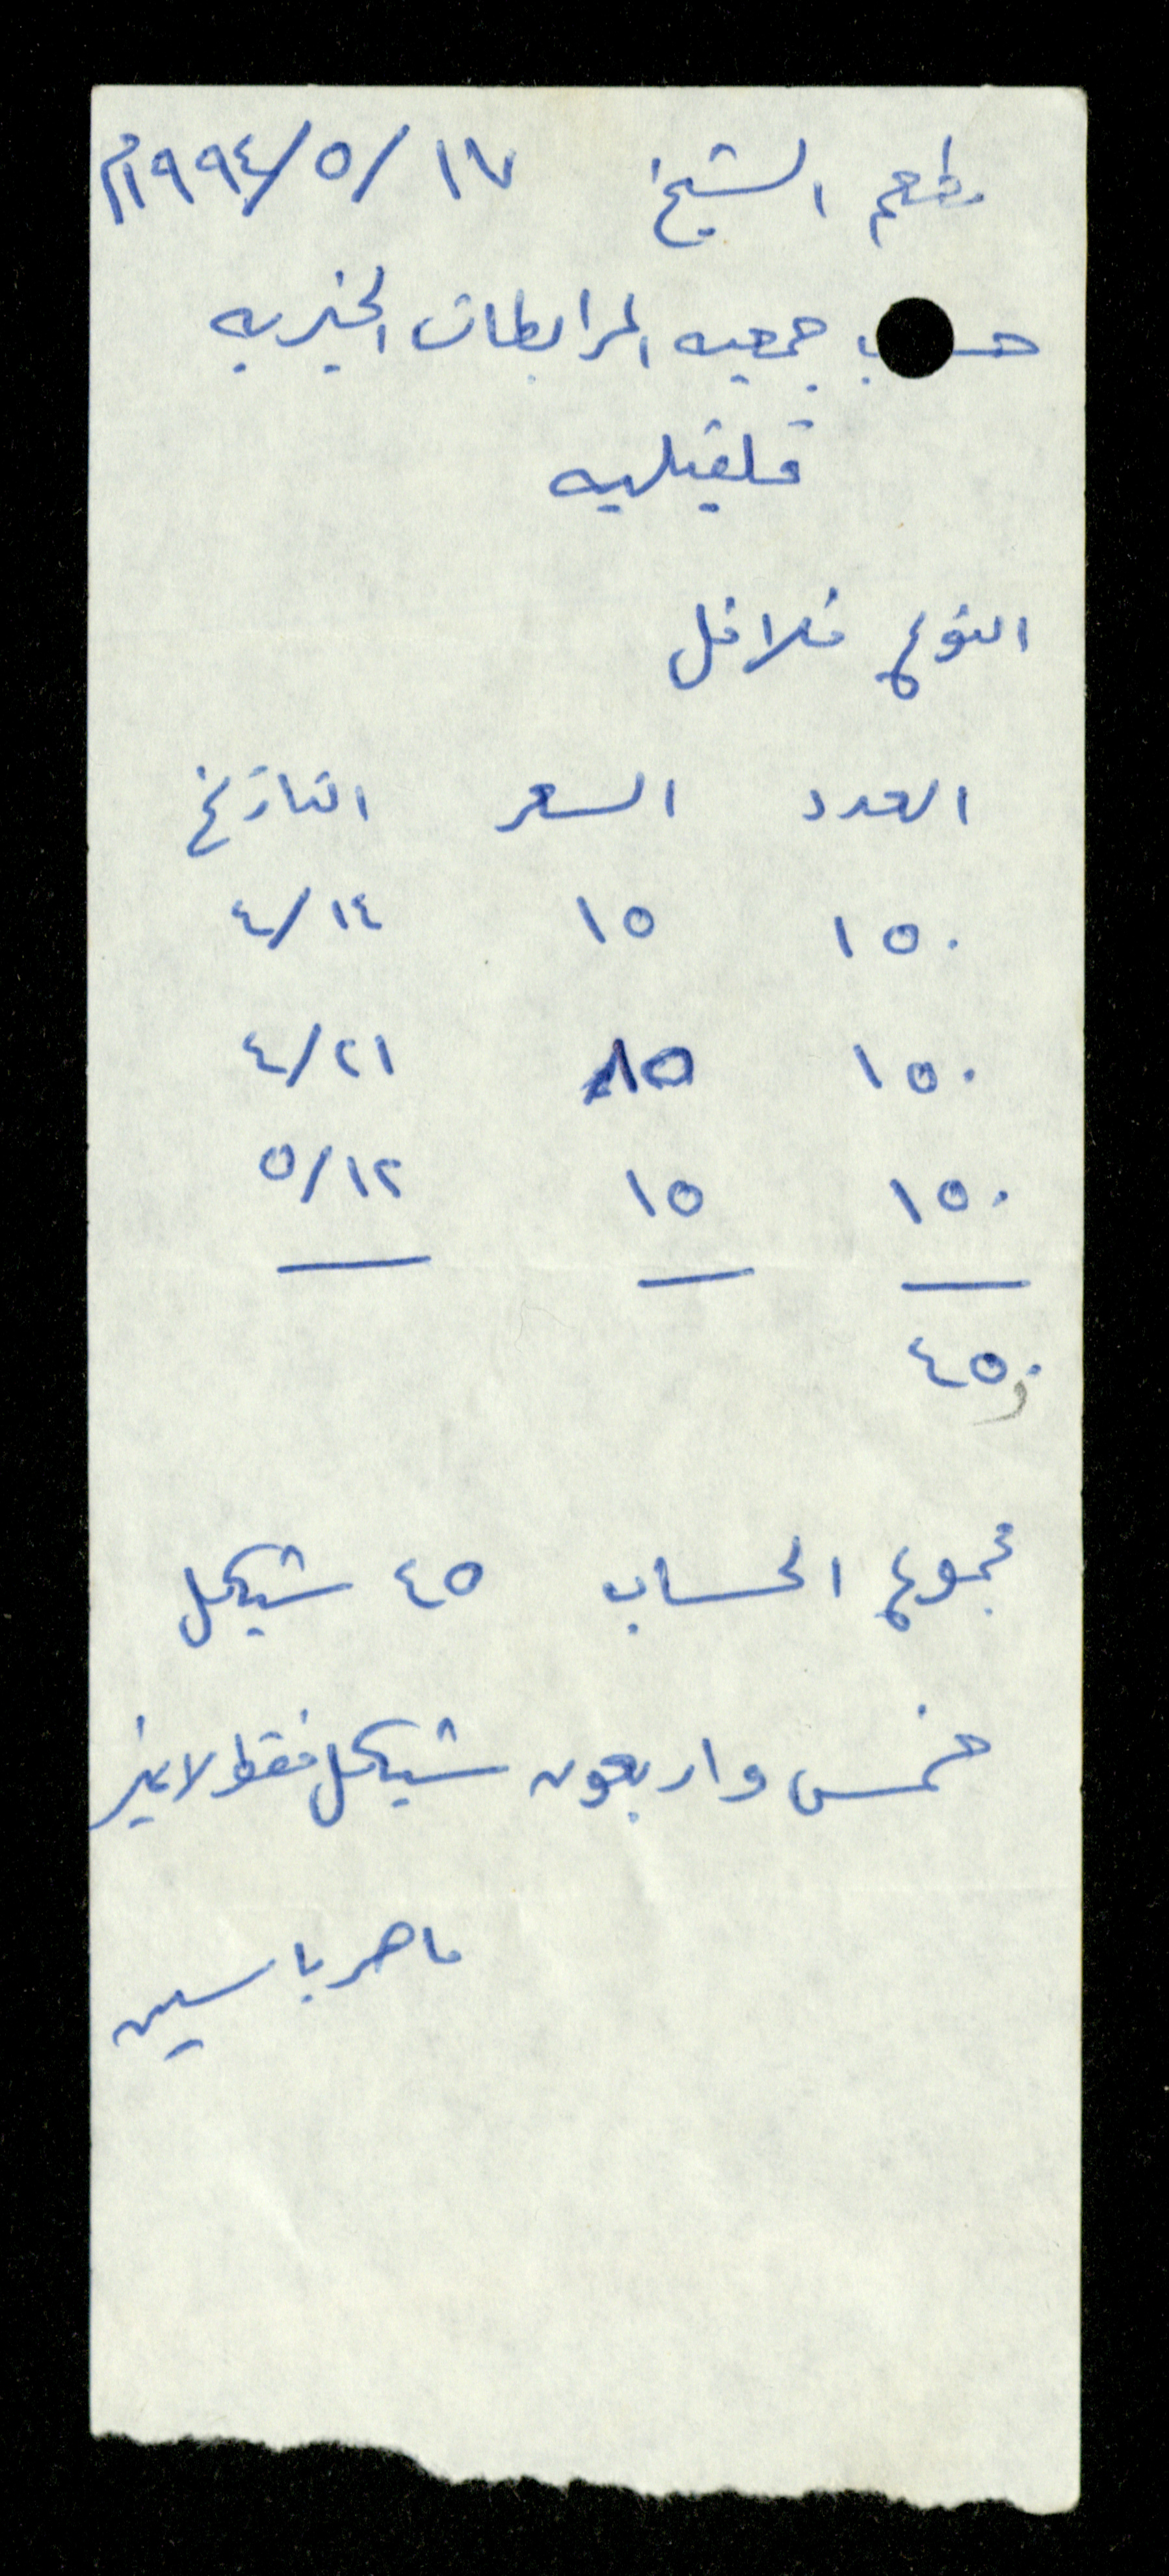 مطعم الشيخ ١٧/٥/١٩٩٤م
حساب جمعيه المرابطات الخيريه
قلقيليه
النوع فلافل
العدد السعر التاريخ
١٥٠ ١٥ ٤/١٤
١٥٠ ١٥ ٤/٢١
١٥٠ ١٥ ٥/١٢
٤٥٠
مجموع الحساب ٤٥ شيكل
خمس واربعون شيكل فقط لاغير
ماهر ياسين